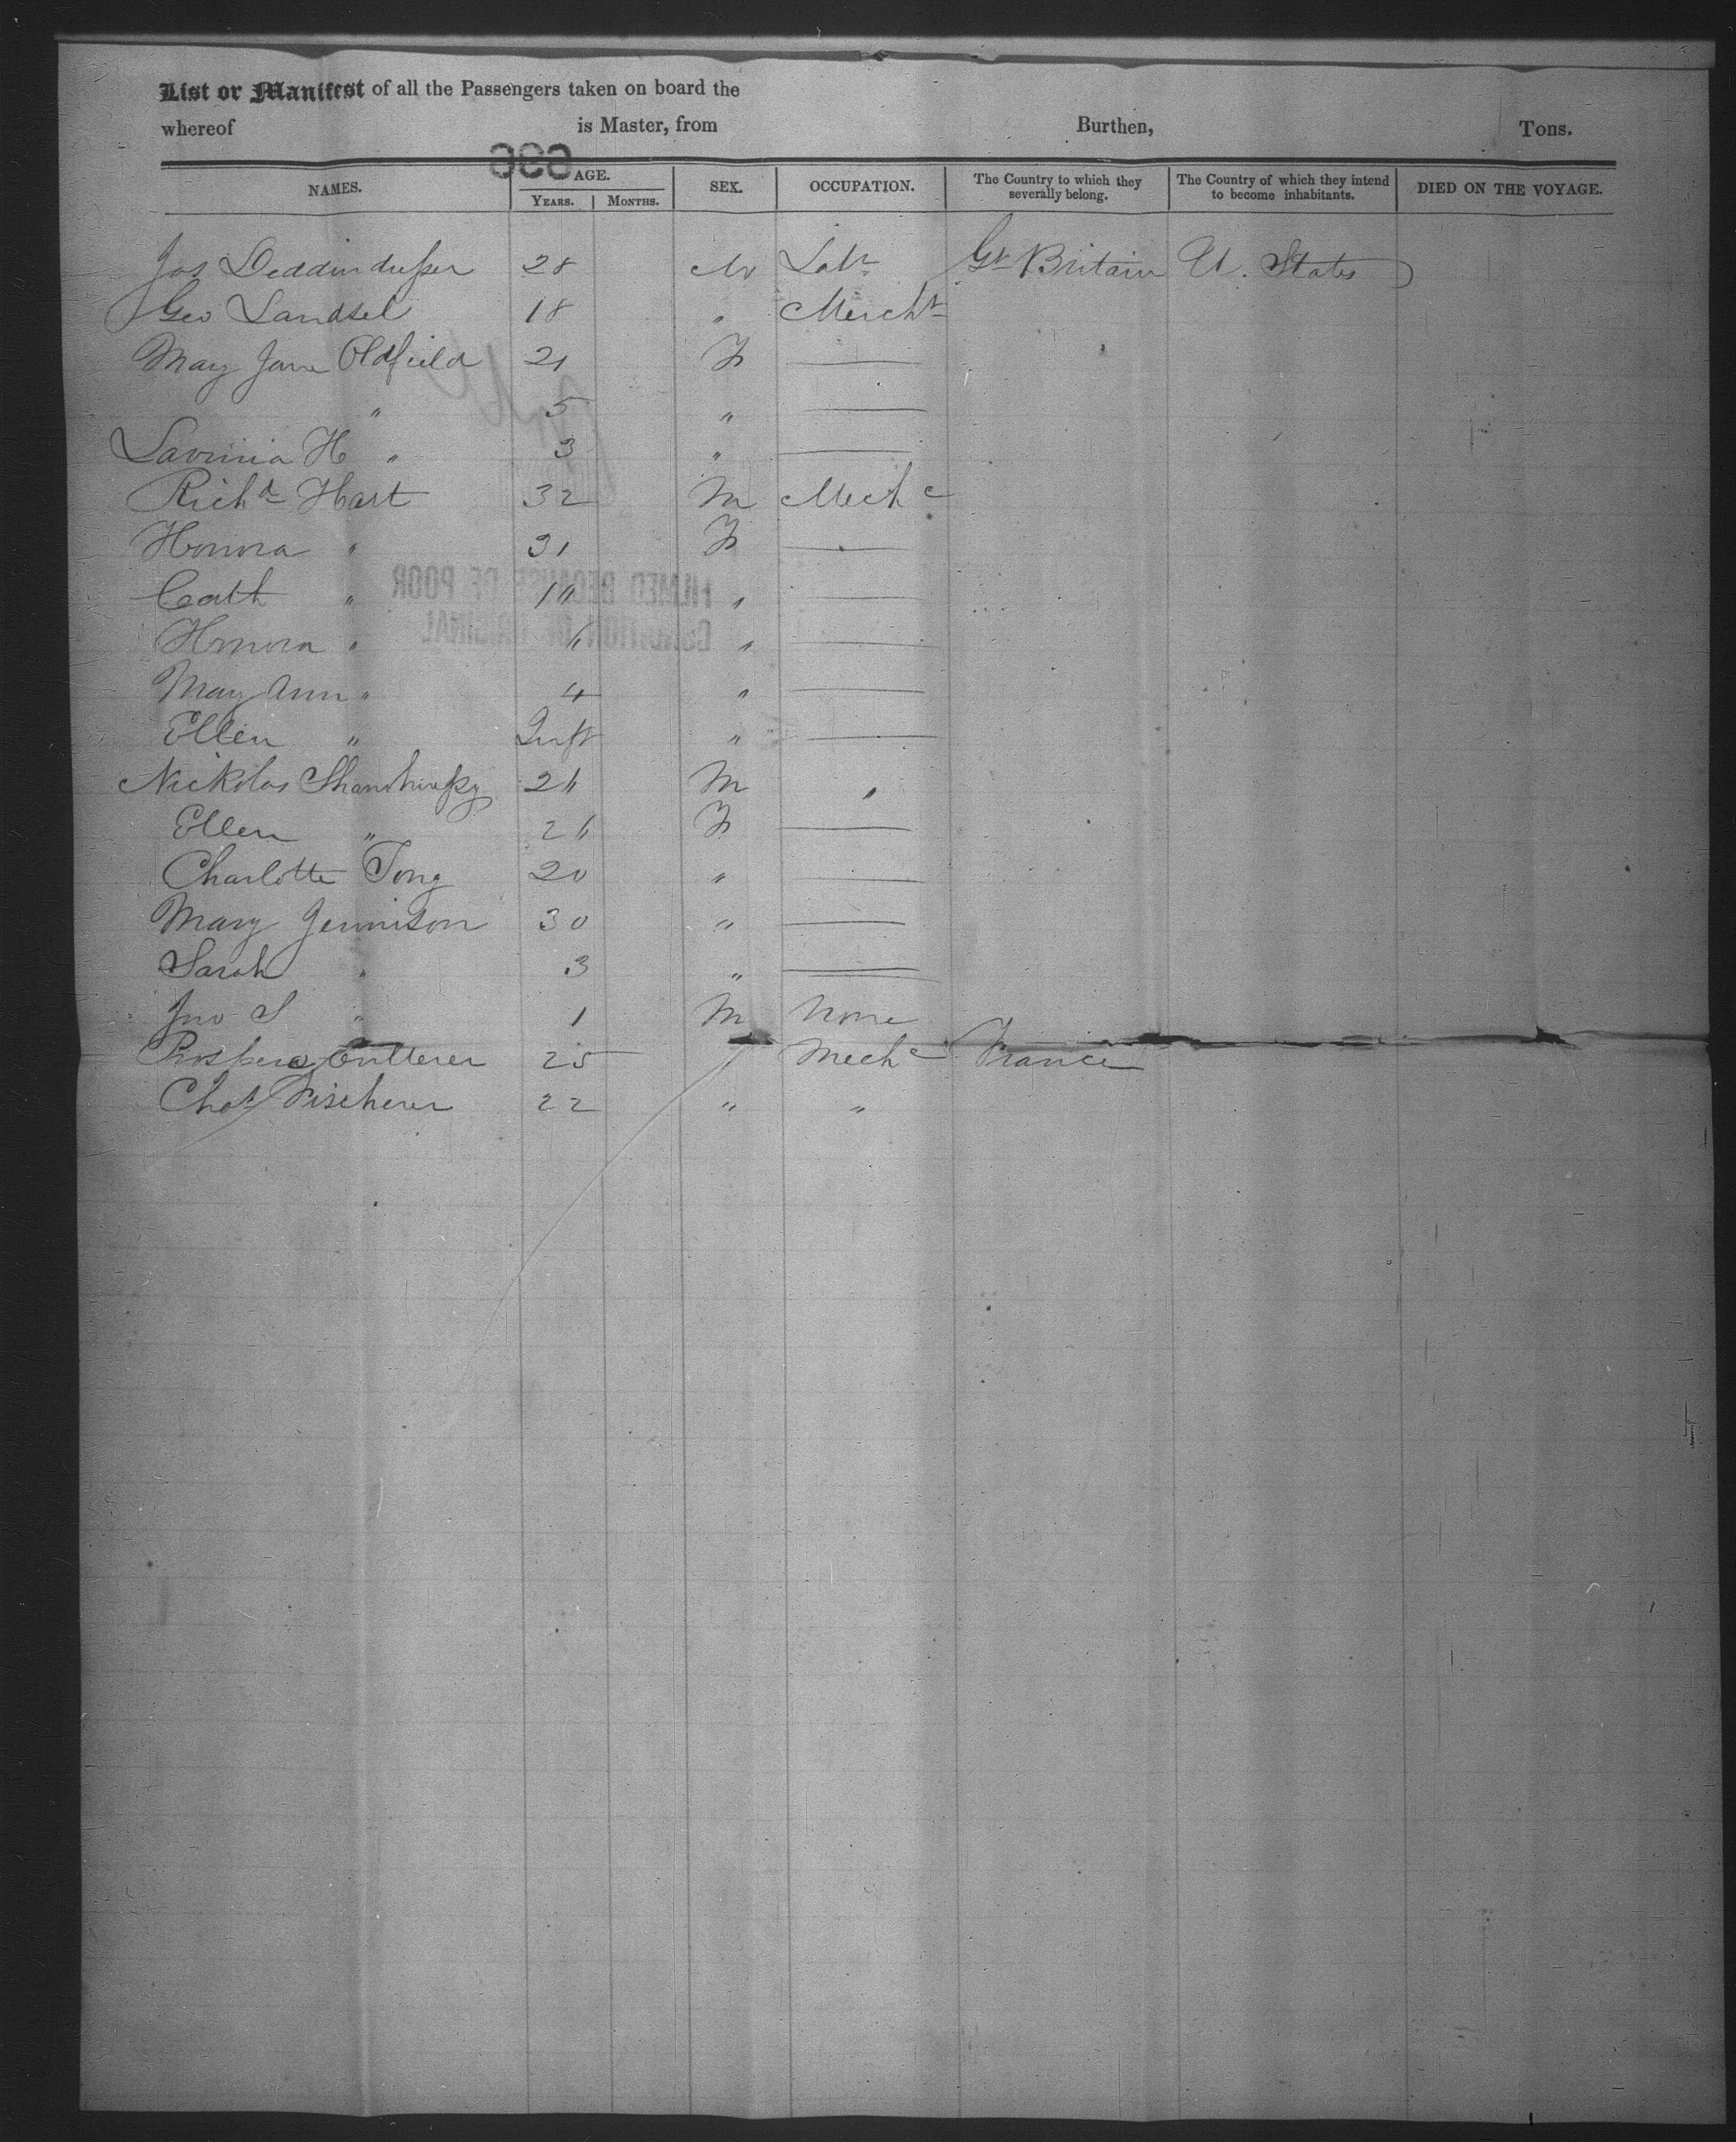 List or Manifest of all the Passengers taken on board the
whereof is Master, from Burthen, Tons.
NAMES. AGE. SEX. OCCUPATION. The Country to which they severally belong. The Country of which they intend to become inhabitants. DIED ON THE VOYAGE.
YEARS. MONTHS.
Jos 28 M Labr Gt Britain U. States
Geo Landsel 18 " Mercht
Mary Jane Oldfield 21 F —
" 5 " —
Lavinia H " 3 " —
Richd Hart 32 M Mechc
Honora " 31 F —
Cath " " —
Honora " " —
Mary Ann " 4 " —
Ellen " Inft " —
Nickolas M "
Ellen " F —
Charlotte Tong 20 " —
Mary Jennison 30 " —
Sarah " 3 " —
Jno S " 1 M None
25 Mechc France
Chas Fischerer 22 " "